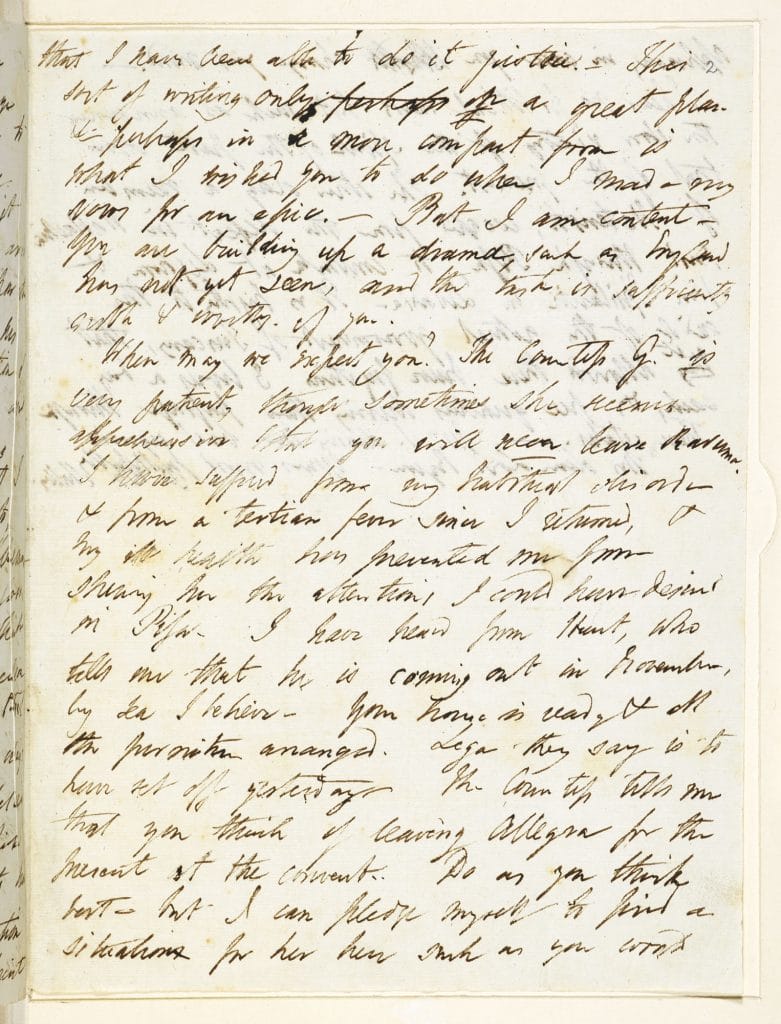 that I have been able to do it justice. – This 2
sort of writing only perhaps on a great plan
& perhaps in a more compact form is
what I wished you to do when I made my
vows for an epic. – But I am content –
You are building up a drama, such as England
has not yet seen, and the task is sufficiently
& worthy of you.
When may we expect you? The Countess G. is
very patient, though sometimes she seems
apprehensive that you will never leave Ravenna.
I have suffered from my habitual disorder
& from a tertian fever since I returned, &
my ill health has prevented me from
shewing her the attentions I could have desired
in Pisa. I have heard from Hunt, who
tells me that he is coming out in November,
by sea I believe – Your house is ready & all
the furniture arranged. Lega they say is to
have set off yesterday – The Countess tells me
that you think of leaving Allegra for the
present at the convent. Do as you think
best – but I can pledge myself to find a
situation for her here such as you would